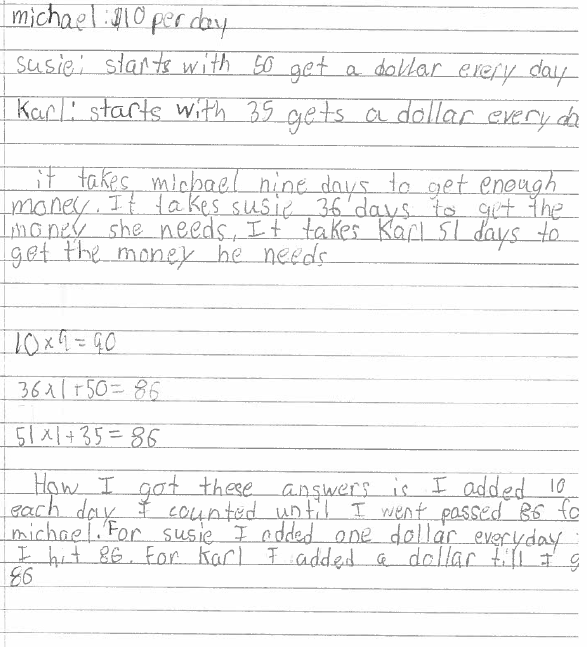 michael: $10 per day
susie: starts with 50 get a dollar every day
Karl: starts with 35 gets a dollar every da
it takes michael nine days to get enough
money. It takes susie 36 days to get the
money she needs, It takes Karl 51 days to
get the money he needs
10x9=90
36x1+50=86
51x1+35=86
How I got these answers is I added 10
each day I counted until I went passed 86 fo
michael. For susie I added one dollar everyday
I hit 86. For Karl I added a dollar till I g
86